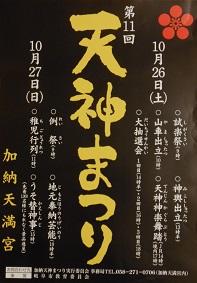 第11回
天神まつり
10月26日(土)
○試楽祭
○神輿出立
○山車出立
○天神神楽舞踏
○大抽選会
10月27日(日)
○例祭
○地元奉納芸能
○稚児行列
○うそ替神事
加納天満宮
加納天神まつり実行委員会 事務局TEL.058-271-0706(加納天満宮内)
岐阜市教育委員会